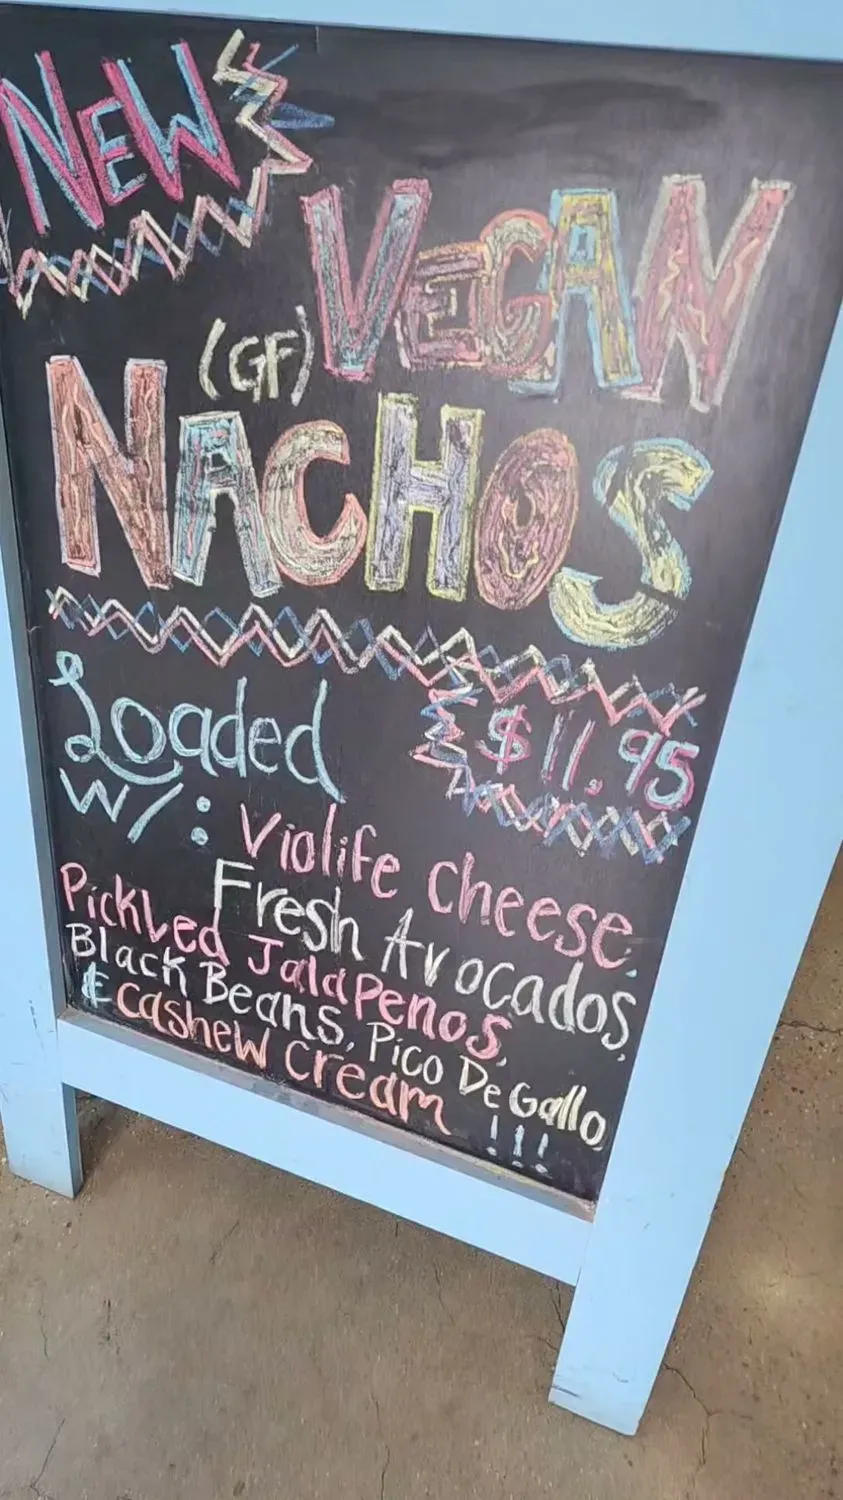 NEW
VEGAN
(GF)
NACHOS
Loaded
$11.95
w/: Violife Cheese,
Fresh Avocados,
Pickled Jalapenos,
Black Beans, Pico De Gallo,
& Cashew Cream
!!!